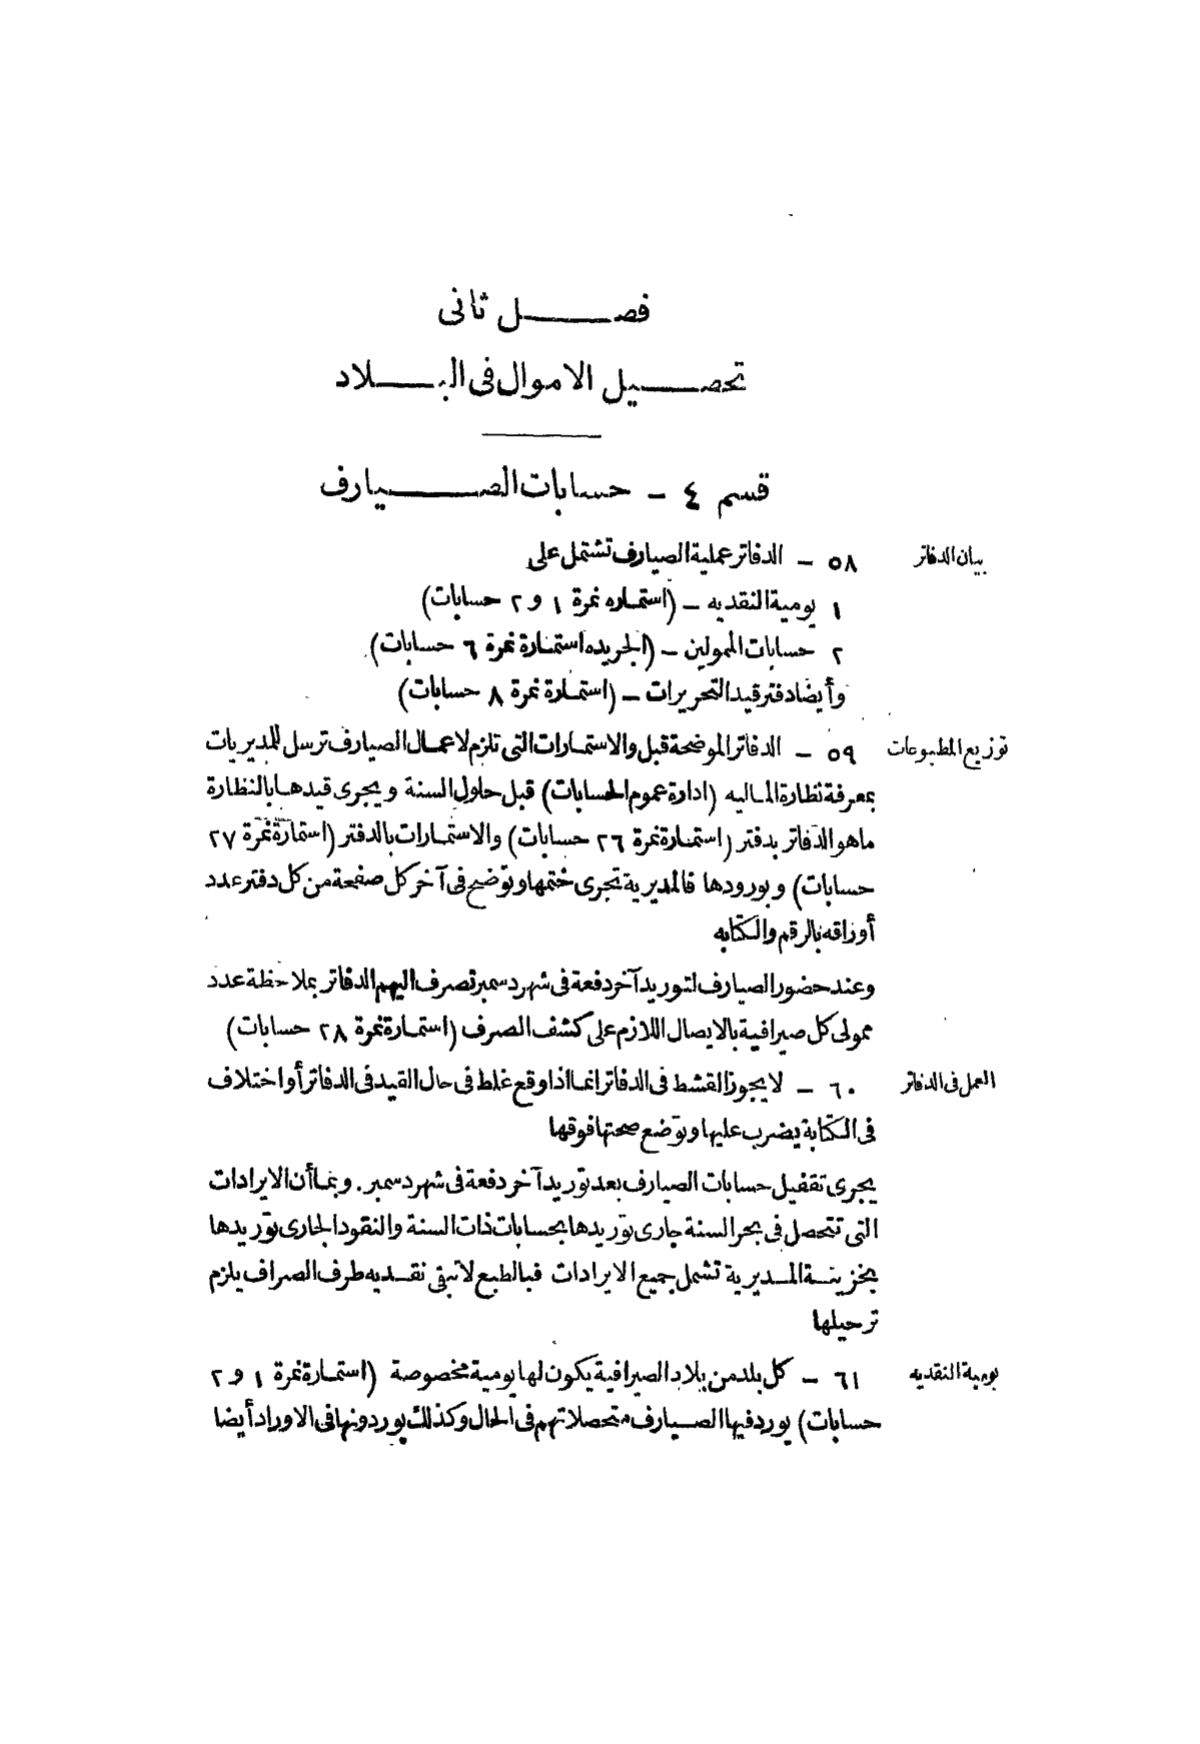 فصل ثانى
تحصيل الاموال فى البلاد
قسم ٤ - حسابات الصيارف
بيان الدفاتر
٥٨ - الدفاتر عملية الصيارف تشتمل على
١ يومية النقديه - (استماره نمرة ١ و ٢ حسابات)
٢ حسابات الممولين - (الجريده استمارة نمرة ٦ حسابات).
وأيضا دفتر قيد التحريرات - (استمارة نمرة ٨ حسابات)
توزيع المطبوعات
٥٩ - الدفاتر الموضحة قبل والاستمارات التى تلزم لاعمال الصيارف ترسل للمديريات
بمعرفة نظارة الماليه (ادارة عموم الحسابات) قبل حلول السنة ويجرى قيدها بالنظارة
ماهو الدفاتر بدفتر (استمارة نمرة ٢٦ حسابات) والاستمارات بالدفتر (استمارة نمرة ٢٧
حسابات) وبورودها فالمديرية تجرى ختمها وتوضح فى آخر كل صفحة من كل دفتر عدد
أوراقه بالرقم والكتابه
وعند حضور الصيارف لتوريد آخر دفعة فى شهر دسمبر تصرف اليهم الدفاتر بملاحظة عدد
ممولى كل صيرافية بالايصال اللازم على كشف الصرف (استمارة نمرة ٢٨ حسابات)
العمل فى الدفاتر
٦٠ - لا يجوز القشط فى الدفاتر انما اذا وقع غلط فى حال القيد فى الدفاتر أو اختلاف
فى الكتابة يضرب عليها وتوضع صحتها فوقها
يجرى تقفيل حسابات الصيارف بعد توريد آخر دفعة فى شهر دسمبر. وبما أن الايرادات
التى تتحصل فى بحر السنة جارى توريدها بحسابات ذات السنة والنقود الجارى توريدها
بخزينة المديرية تشمل جميع الايرادات فبالطبع لا تبقى نقديه طرف الصراف يلزم
ترحيلها
يومية النقديه
٦١ - كل بلد من بلاد الصيرافية يكون لها يومية مخصوصة (استمارة نمرة ١ و ٢
حسابات) يورد فيها الصيارف متحصلاتهم فى الحال وكذلك يوردونها فى الاوراد أيضا